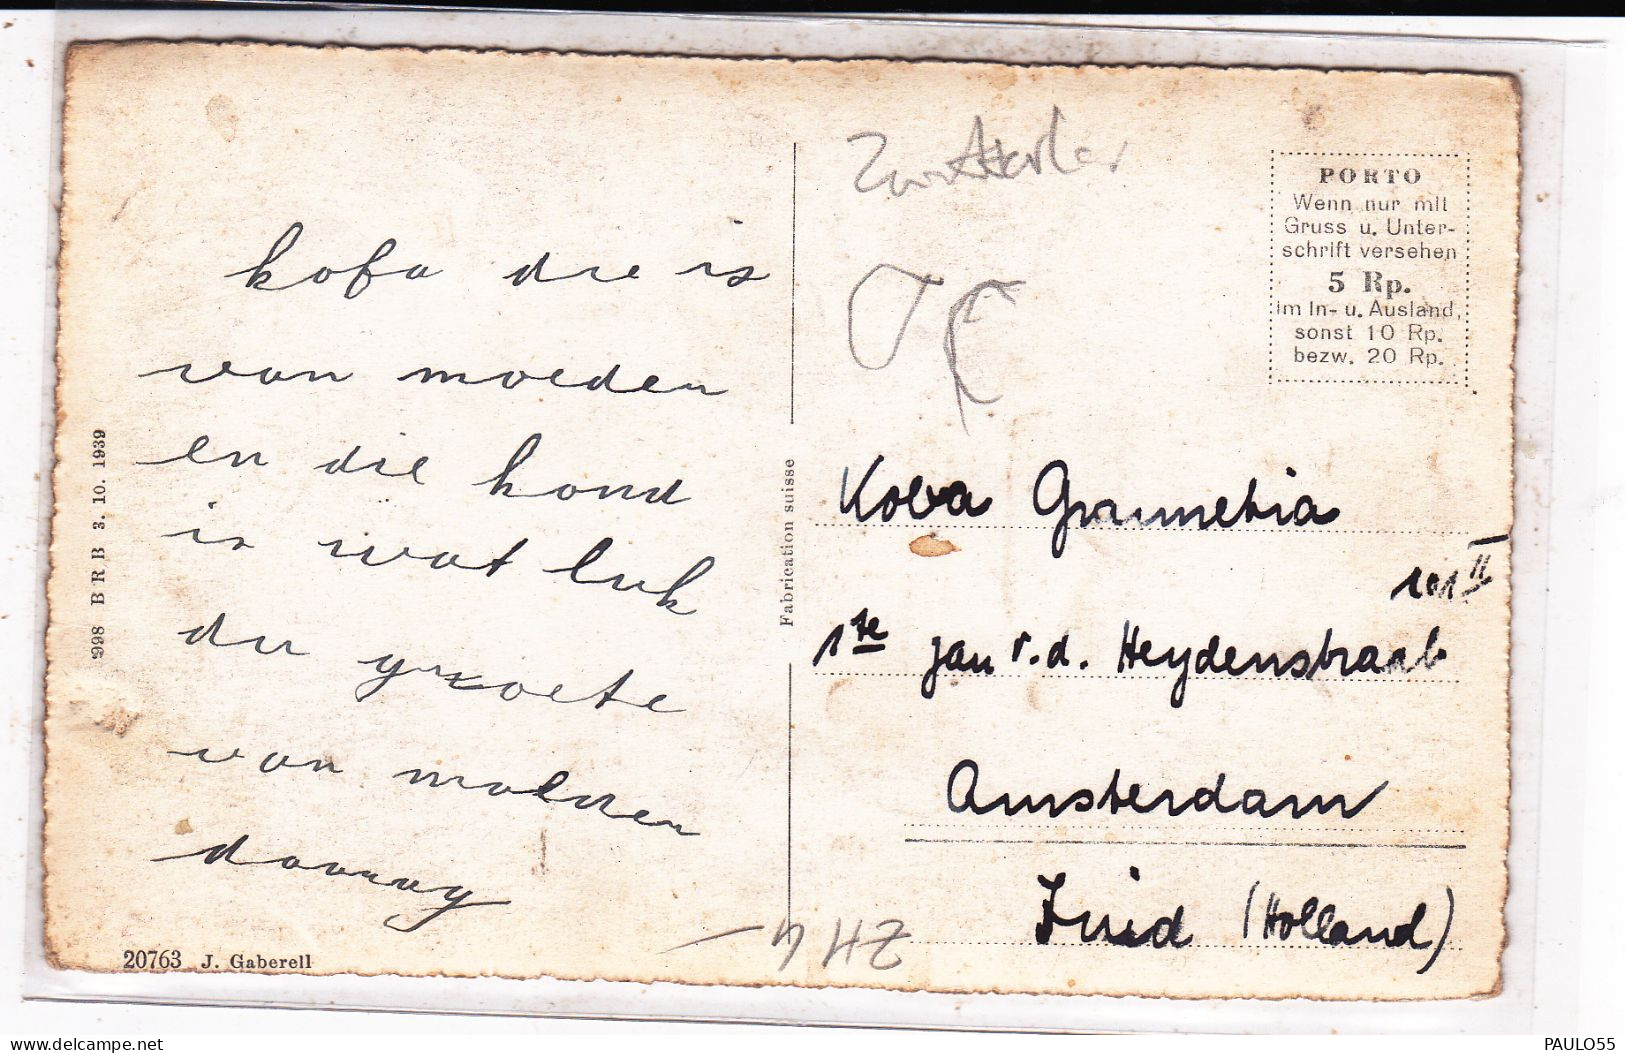 kofa die is
van moeden
en die hond
is wat luk
du groete
van moeder
20763 J. Gaberell
998 B R B 3. 10. 1939
Fabrication suisse
PORTO
Wenn nur mit
Gruss u. Unter-
schrift versehen
5 Rp.
im In- u. Ausland,
sonst 10 Rp.
bezw. 20 Rp.
Koba
101 II
1te Jan v.d. Heydenstraat
Amsterdam
Zuid (Holland)
delcampe.net
PAULO55